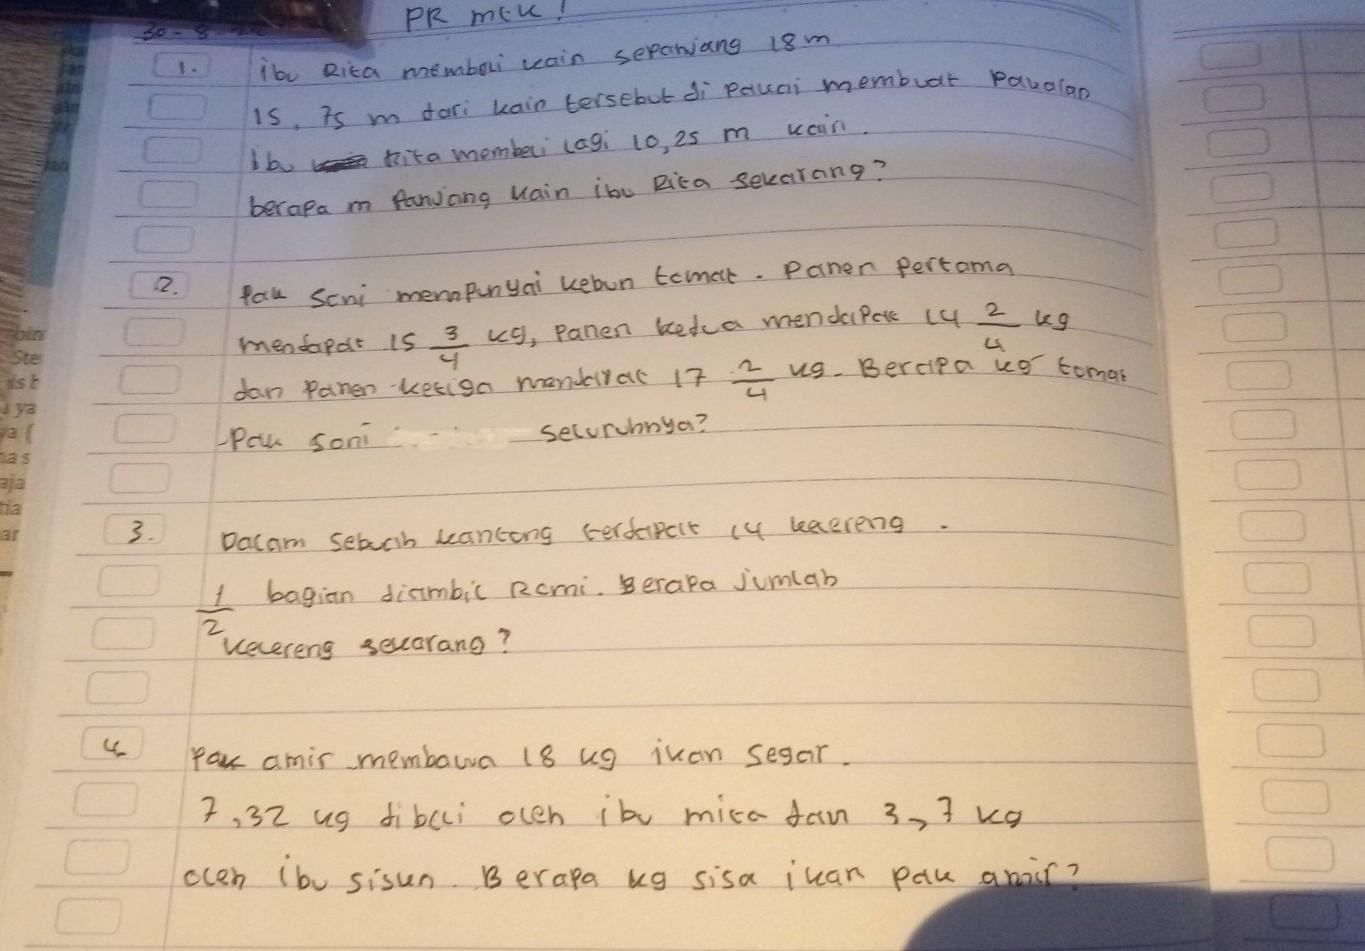 PR MtK!
30-8-
1. ibu Rita membeli kain sepanjang 18 m
15,75 m dari kain tersebut di pakai membuat pakaian
ibu Rita membeli lagi 10,25 m kain.
berapa m Panjang kain ibu Rita sekarang?
2. Pak Soni mempunyai kebun tomat. Panen Pertama
mendapat 15 3/4 kg, Panen kedua mendapat 14 2/4 kg
dan Panen ketiga mendapat 17 2/4 kg. Berapa kg tomat
Pak Soni seluruhnya?
3. Dalam sebuah kantong terdapat 14 kelereng.
1/2 bagian diambil Romi. Berapa jumlah
kelereng sekarang?
4 Pak amir membawa 18 kg ikan segar.
7,32 kg dibeli oleh ibu mita dan 3,7 kg
oleh ibu sisun. Berapa kg sisa ikan pak amir?
bin
Ste
ya
as
aja
tia
ar